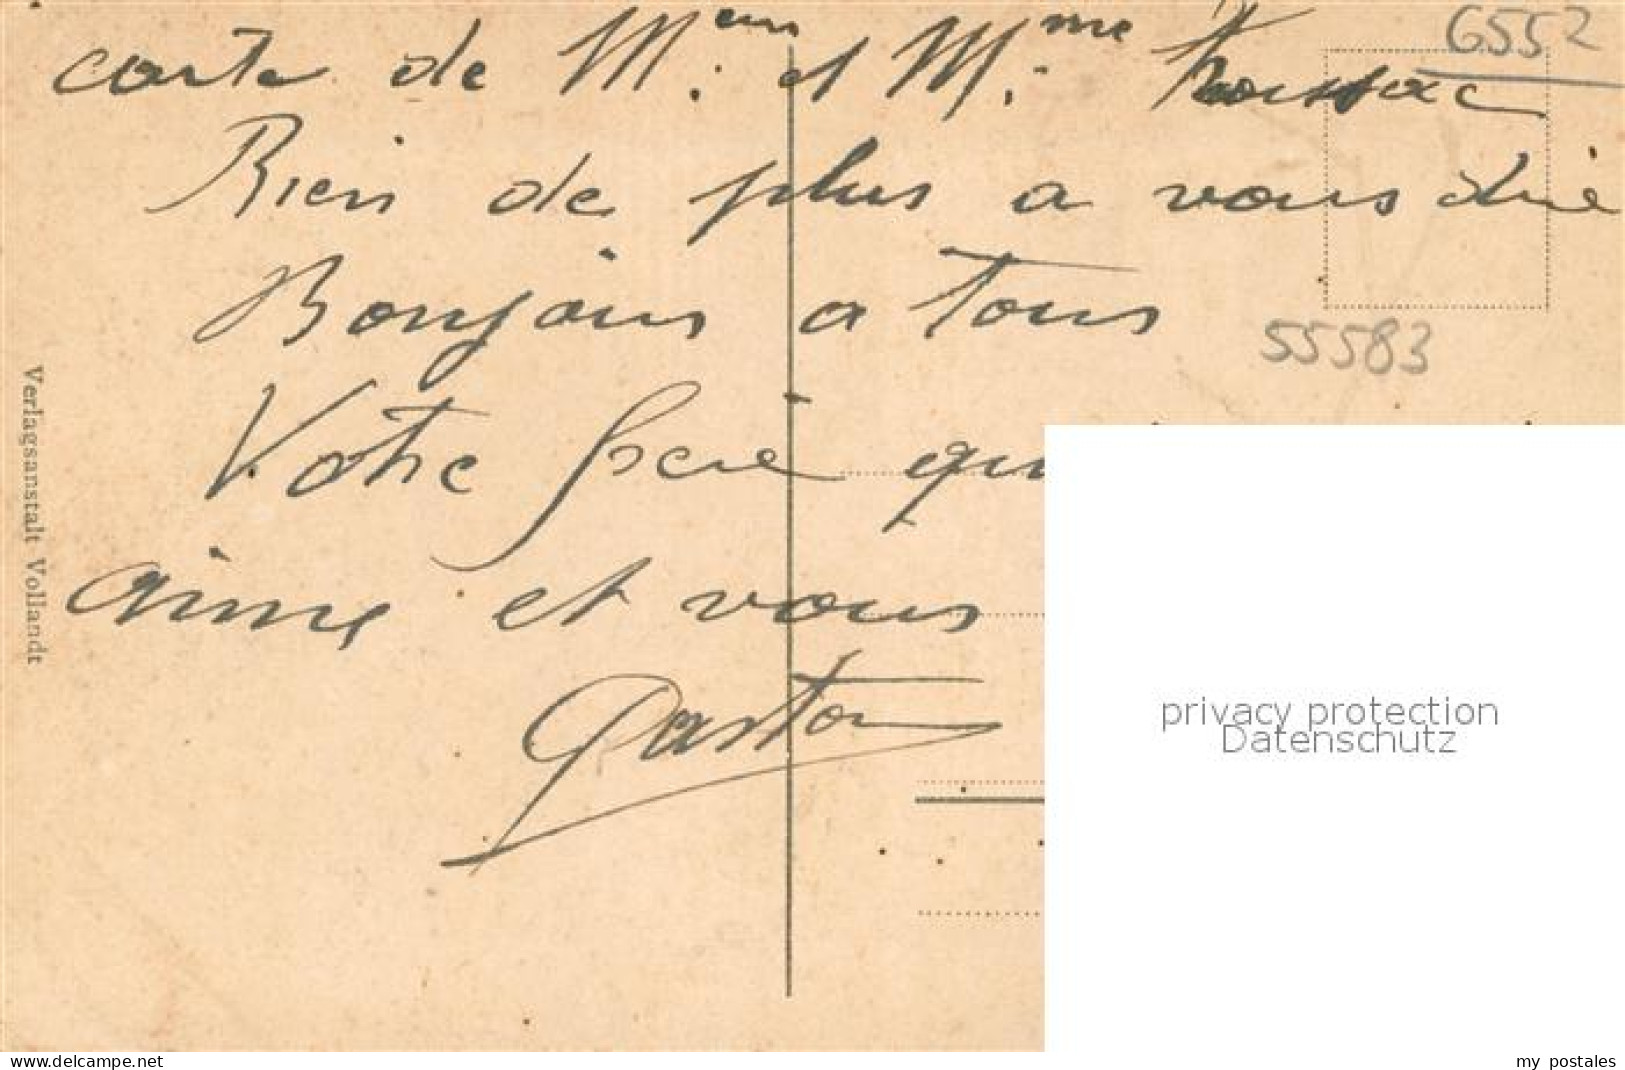 6552
carte de Meur. et Mme.
Rien de plus a vous dire
Bonjour a tous
55583
Votre frere qui
aime et vous
Gaston
Verlagsanstalt Vollandt
privacy protection
Datenschutz
www.delcampe.net
my postales